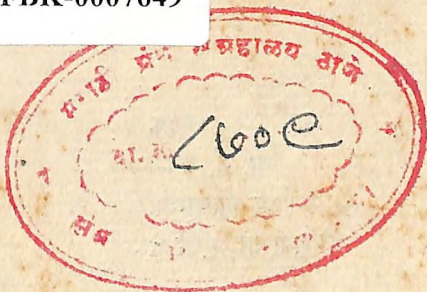 FBK-0007649
मराठी ग्रंथ संग्रहालय ठाणे
८७०९